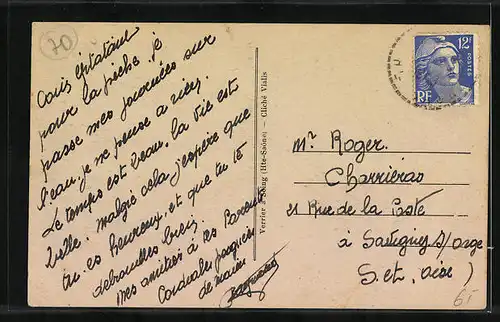 70
pour la pêche. je
passe mes journées sur
l'eau. je ne pense a rien.
Le temps est beau. la vie est
belle. malgré cela j'espère que
tu es heureux. et que tu te
debrouilles bien.
mes amitiés à tes Parents
Cordiale poignée
de main
Verrier à (Hte-Saône) - Cliché Vialis
12F
POSTES
RF
Mr Roger
Charrierao
21 Rue de la Poste
à Savigny s/ orge
S. et. oise)
65